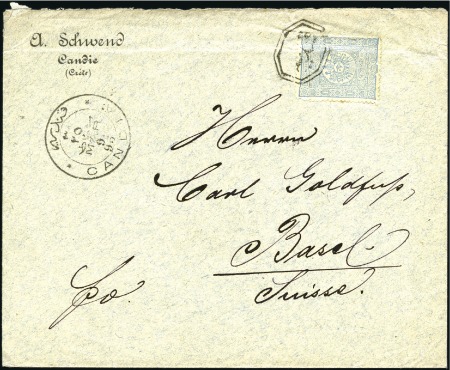 A. Schwend
Candie
(Crète)
CANDIE
Herrn
Carl Goldfuß,
Basel.
Suisse.